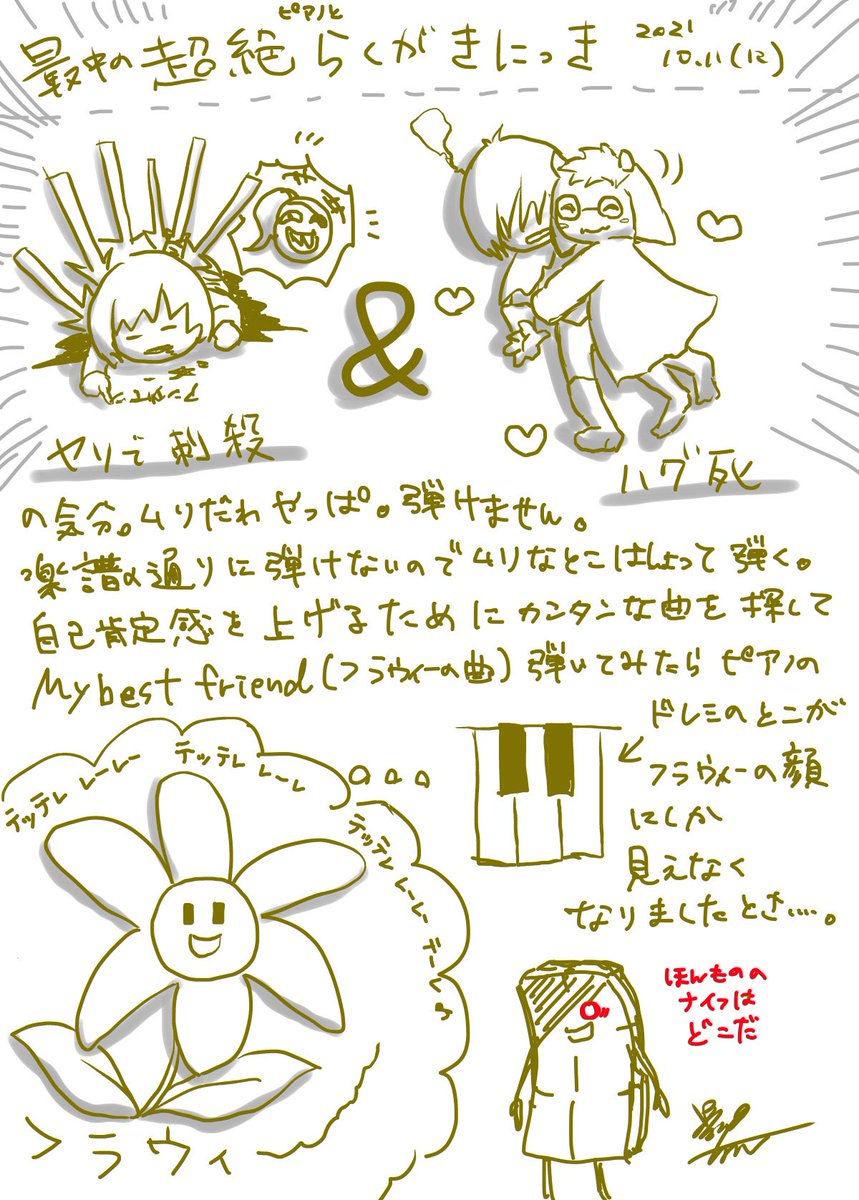 ピアノと
最中の超絶らくがきにっき
2021
10.11(12)
&
ヤリで刺殺
ハグ死
の気分。ムリだわやっぱ。弾けません。
楽譜の通りに弾けないのでムリなとこはしょって弾く。
自己肯定感を上げるためにカンタンな曲を探して
My best friend(フラウィーの曲)弾いてみたらピアノの
ドレミのとこが
フラウィーの顔
にしか
見えなく
なりましたとさ….。
テッテレ レーレー テッテレ レーレ
テッテレ レーレ テーレ♪
フラウィ
ほんものの
ナイフは
どこだ